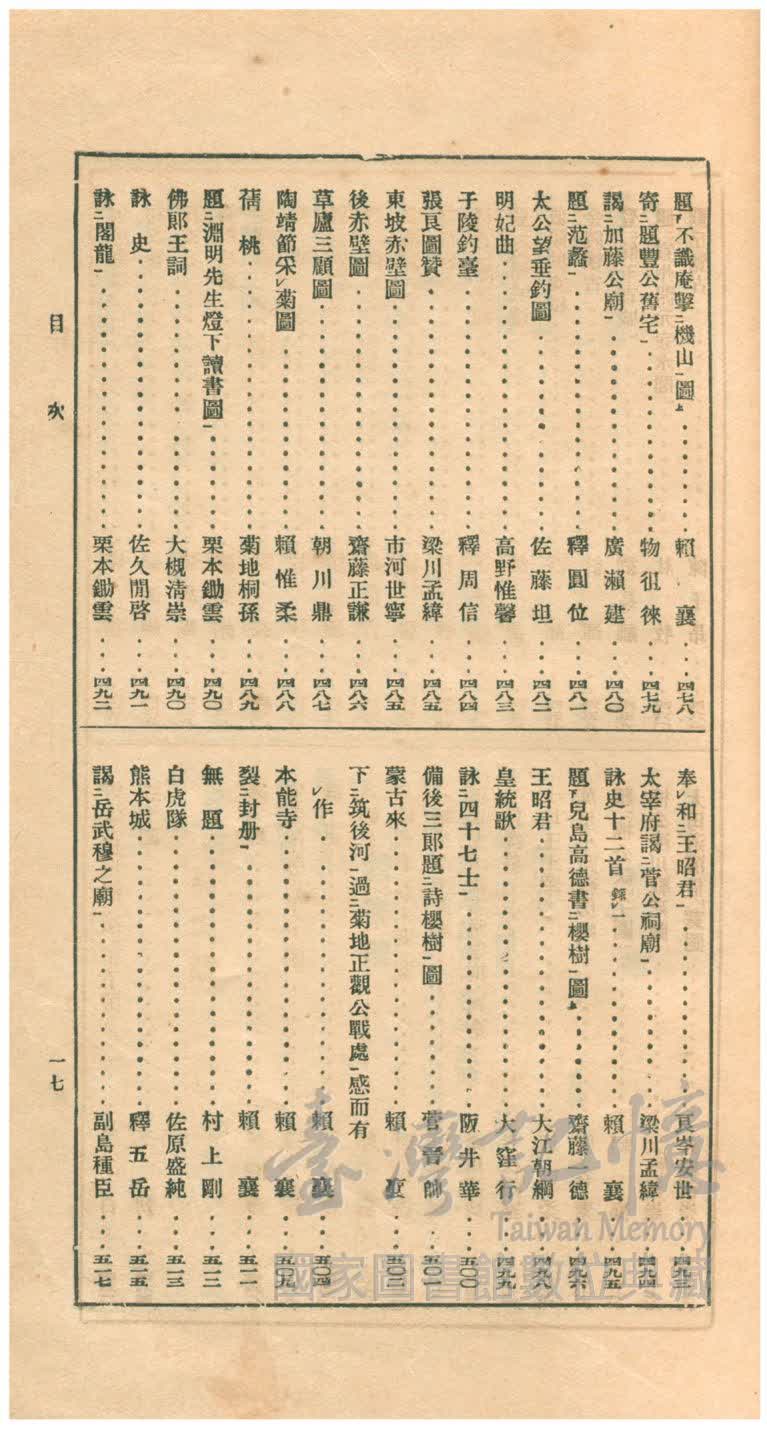 題下不識庵擊二機山一圖上……賴襄…四七八
寄二題豐公舊宅一……物徂徠…四七九
謁二加藤公廟一……廣瀨建…四八〇
題二范蠡一……釋圓位…四八一
太公望垂釣圖……佐藤坦…四八二
明妃曲……高野惟馨…四八三
子陵釣臺……釋周信…四八四
張良圖贊……梁川孟緯…四八五
東坡赤壁圖……市河世寧…四八五
後赤壁圖……齋藤正謙…四八六
草廬三顧圖……朝川鼎…四八七
陶靖節采レ菊圖……賴惟柔…四八八
蒨桃……菊地桐孫…四八九
題二淵明先生燈下讀書圖一……栗本鋤雲…四九〇
佛郎王詞……大槻清崇…四九〇
詠史……佐久間啓…四九一
詠二閣龍一……栗本鋤雲…四九二
奉レ和二王昭君一……良岑安世…四九三
太宰府謁二菅公祠廟一……梁川孟緯…四九四
詠史十二首 錄レ一……賴襄…四九五
題下兒島高德書二櫻樹一圖上……齋藤一德…四九六
王昭君……大江朝綱…四九八
皇統歌……大窪行…四九九
詠二四十七士一……阪井華…五〇〇
備後三郎題二詩櫻樹一圖……菅晉帥…五〇一
蒙古來……賴襄…五〇二
下二筑後河一過二菊地正觀公戰處一感而有
レ作……賴襄…五〇四
本能寺……賴襄…五〇九
裂二封册一……賴襄…五一一
無題……村上剛…五一二
白虎隊……佐原盛純…五一三
熊本城……釋五岳…五一五
謁二岳武穆之廟一……副島種臣…五一七
目次
一七
臺灣記憶
Taiwan Memory
國家圖書館數位典藏